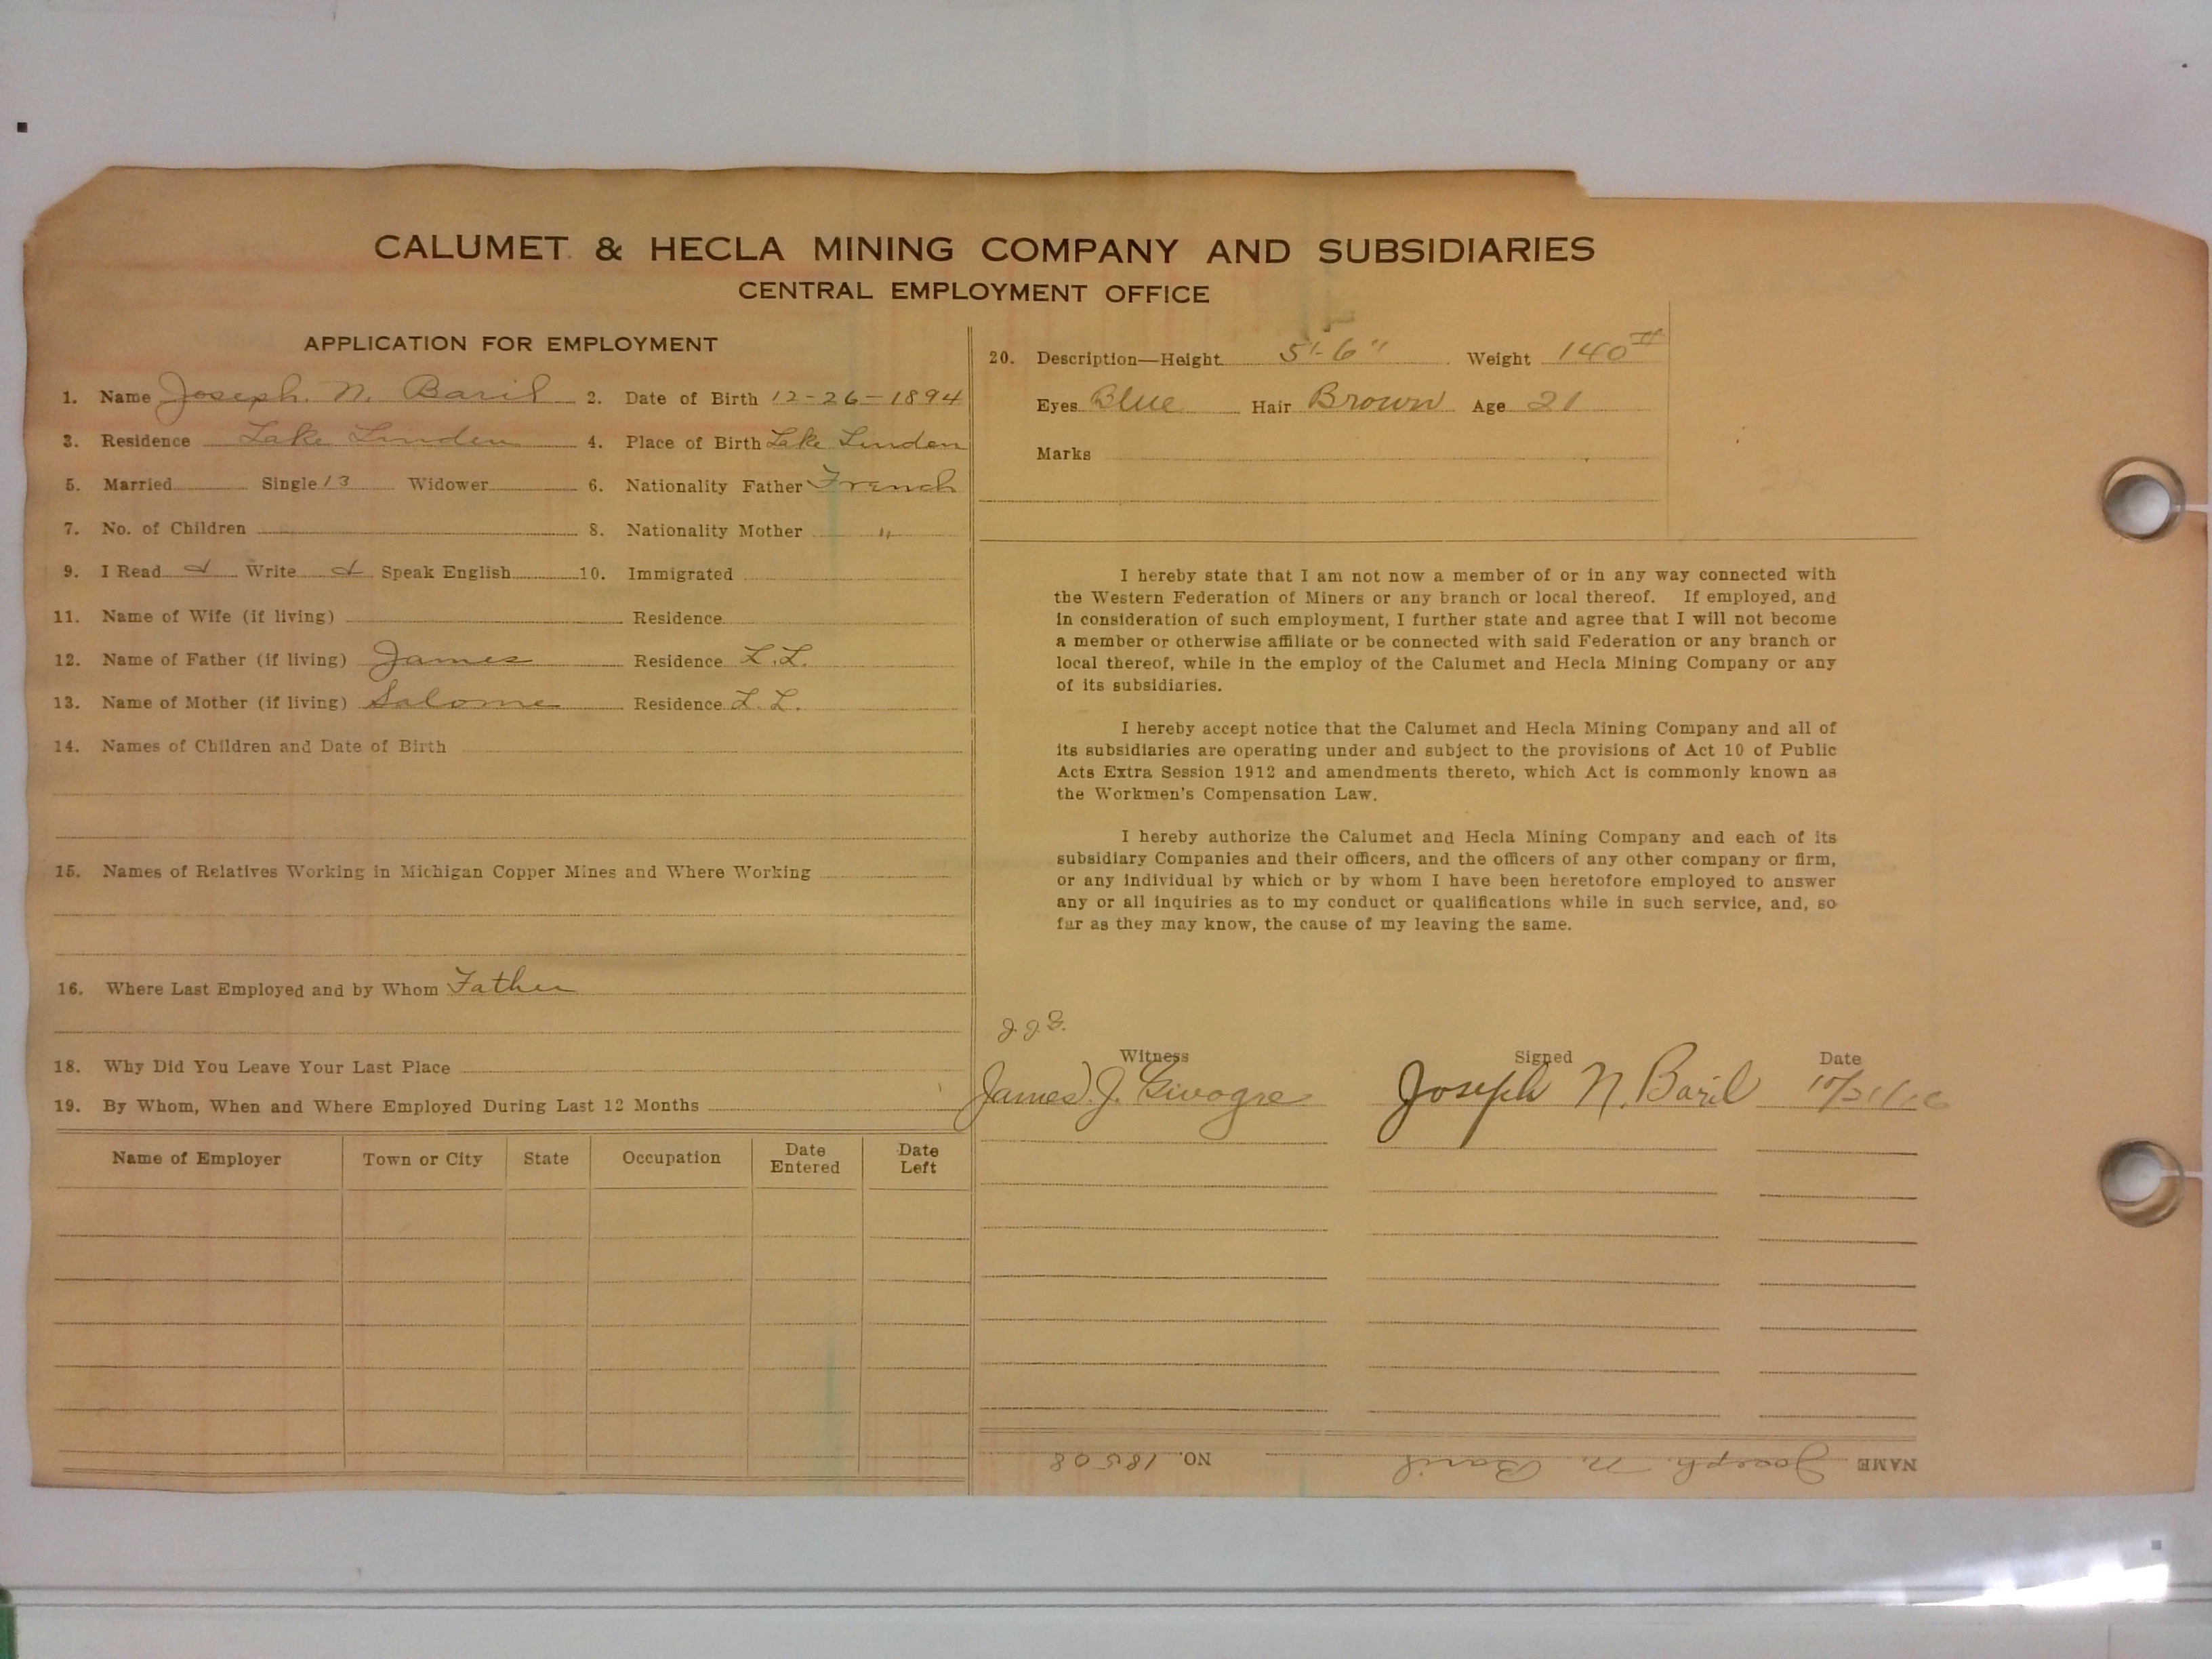 CALUMET & HECLA MINING COMPANY AND SUBSIDIARIES
CENTRAL EMPLOYMENT OFFICE
APPLICATION FOR EMPLOYMENT
1. Name Joseph. N. Baril 2. Date of Birth 12-26-1894
3. Residence Lake Linden 4. Place of Birth Lake Linden
5. Married Single 13 Widower 6. Nationality Father French
7. No. of Children 8. Nationality Mother "
9. I Read & Write & Speak English 10. Immigrated
11. Name of Wife (if living) Residence
12. Name of Father (if living) James Residence L.L.
13. Name of Mother (if living) Salome Residence L.L.
14. Names of Children and Date of Birth
15. Names of Relatives Working in Michigan Copper Mines and Where Working
16. Where Last Employed and by Whom Father
18. Why Did You Leave Your Last Place
19. By Whom, When and Where Employed During Last 12 Months
Name of Employer Town or City State Occupation Date Entered Date Left
20. Description—Height 5'-6" Weight 140 #
Eyes Blue Hair Brown Age 21
Marks
I hereby state that I am not now a member of or in any way connected with
the Western Federation of Miners or any branch or local thereof. If employed, and
in consideration of such employment, I further state and agree that I will not become
a member or otherwise affiliate or be connected with said Federation or any branch or
local thereof, while in the employ of the Calumet and Hecla Mining Company or any
of its subsidiaries.
I hereby accept notice that the Calumet and Hecla Mining Company and all of
its subsidiaries are operating under and subject to the provisions of Act 10 of Public
Acts Extra Session 1912 and amendments thereto, which Act is commonly known as
the Workmen's Compensation Law.
I hereby authorize the Calumet and Hecla Mining Company and each of its
subsidiary Companies and their officers, and the officers of any other company or firm,
or any individual by which or by whom I have been heretofore employed to answer
any or all inquiries as to my conduct or qualifications while in such service, and, so
far as they may know, the cause of my leaving the same.
Witness Signed Date
James J. Joseph N. Baril
NAME Joseph. N. Baril NO. 18508